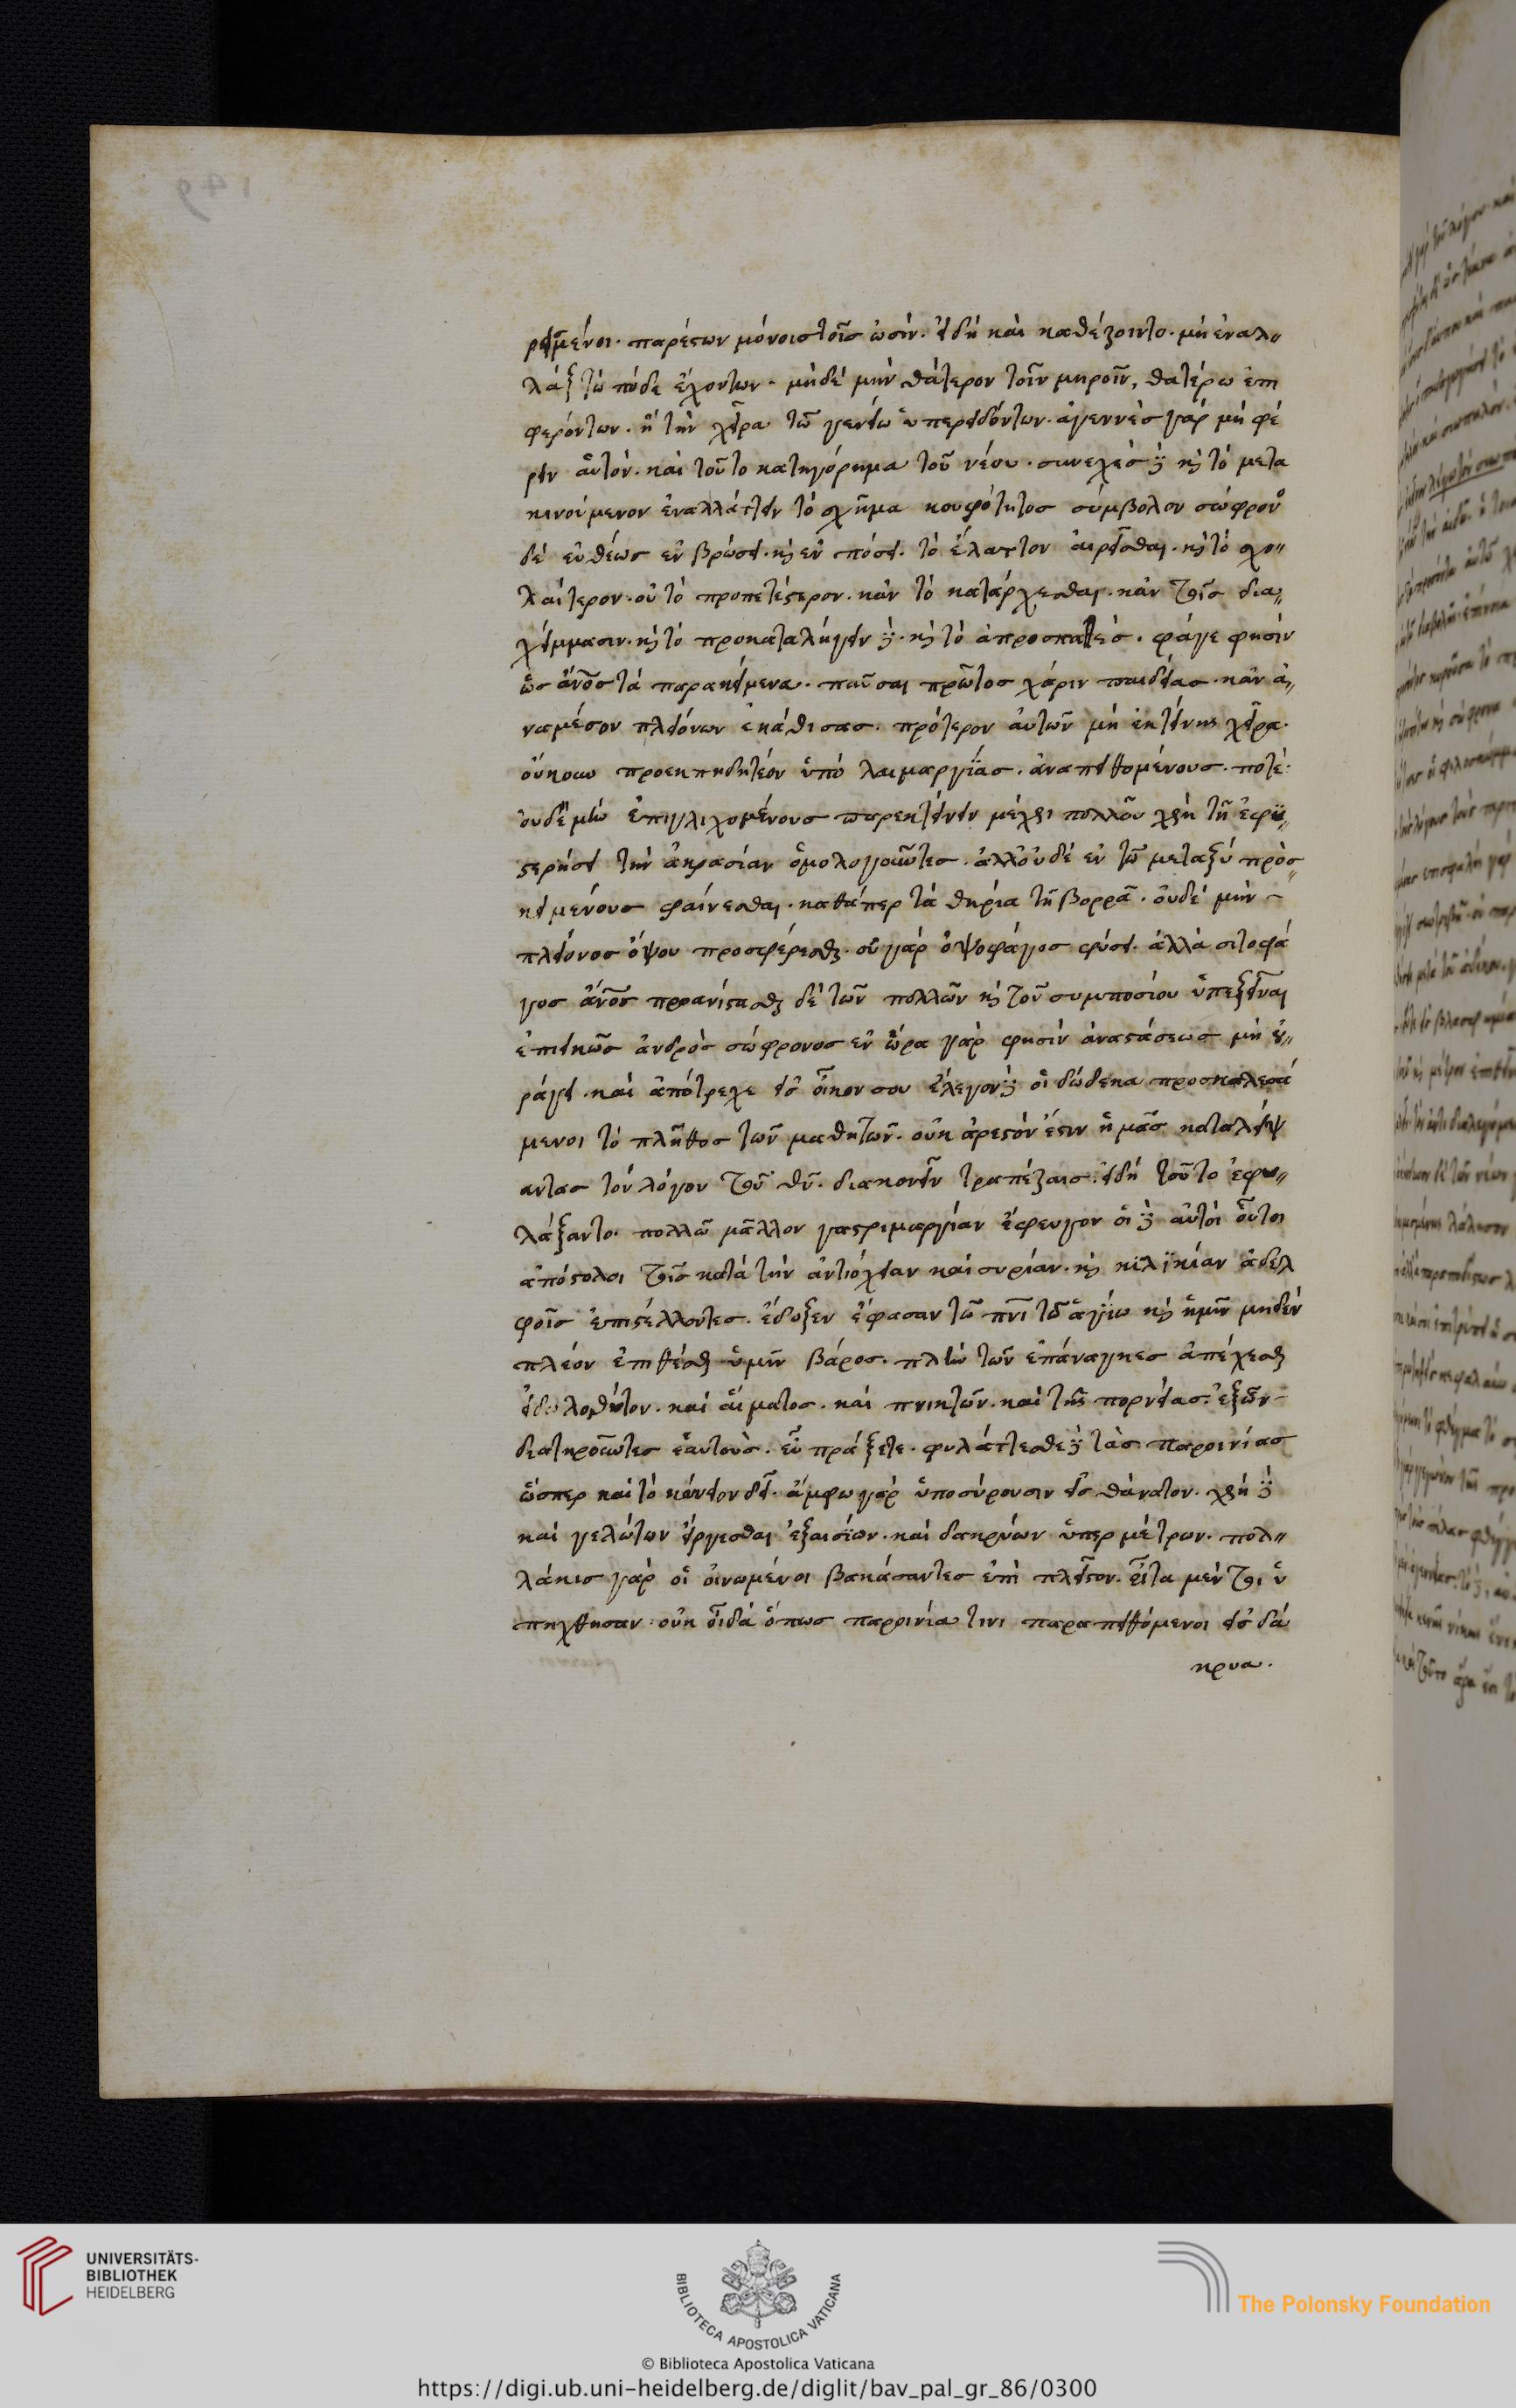 ρειμένοι. παρέστων μόνοις τοῖς ὠσίν. εἰ δὴ καὶ καθέζοιντο. μὴ ἐναλ"
λὰξ τὼ πόδε ἐχόντων. μὴδὲ μὴν θάτερον τοῖν μηροῖν, θατέρω ἐπι
φερόντων. ἢ τὴν χεῖρα τῶ γενείω ὑπερειδόντων. ἀγεννὲς γὰρ μὴ φέ
ρειν αὑτὸν. καὶ τοῦτο κατηγόρημα τοῦ νέου. συνεχὲς δὲ κὶ τὸ μετα
κινούμενον ἐναλλάττειν τὸ σχῆμα κουφότητος σύμβολον σώφρον
δὲ εὐθέως ἐν βρώσει. κὶ ἐν πόσει. τὸ ἔλαττον αἱρεῖσθαι. κὶ τὸ σχο"
λαίτερον. οὐ τὸ προπετέστερον. κἀν τὸ κατάρχεσθαι. κἀν τοῖς δια"
λείμμασιν. κὶ τὸ προκαταλήγειν δὲ. κὶ τὸ ἀπροσπαθές. φάγε φησὶν
ὡς ἄνος τὰ παρακείμενα. παῦσαι πρῶτος χάριν παιδείας. κἂν ἀ"
ναμέσον πλειόνων ἐκάθισας. πρότερον αὐτῶν μὴ ἐκτείνης χεῖρα.
οὔκουν προεκπηδητέον ὑπὸ λαιμαργίας. ἀναπειθομένους. ποτέ.
οὐδὲ μὴν ἐπιγλιχομένους παρεκτείνειν μέχρι πολλοῦ χρὴ τῆ ἐφυ"
στερήσει τὴν ἀκρασίαν ὁμολογοῦντες. ἀλλ' οὐδὲ ἐν τῶ μεταξὺ προσ"
κειμένους φαίνεσθαι. καθάπερ τὰ θηρία τῆ βορρᾶ. οὐδὲ μὴν
πλείονος ὄψου προσφέρεσθαι. οὐ γὰρ ὀψοφάγος φύσει. ἀλλὰ σιτοφά
γος ἄνος προανίστασθαι δὲ τῶν πολλῶν κὶ τοῦ συμποσίου ὑπεξεῖναι
ἐπιεικῶς ἀνδρὸς σώφρονος ἐν ὥρα γὰρ φησὶν ἀναστάσεως μὴ οὐ"
ράγει. καὶ ἀπότρεχε εἰς οἶκον σου ἔλεγον δὲ οἱ δώδεκα προσκαλεσά
μενοι τὸ πλῆθος τῶν μαθητῶν. οὐκ ἀρεστὸν ἐστιν ἡμᾶς καταλείψ
αντας τὸν λόγον τοῦ θυ. διακονεῖν τραπέζαις. εἰ δὴ τοῦτο ἐφυ"
λάξαντο. πολλῶ μᾶλλον γαστριμαργίαν ἔφευγον οἱ δὲ αὐτοὶ οὗτοι
ἀπόστολοι τοῖς κατὰ τὴν ἀντιόχειαν καὶ συρίαν. κὶ κιλικίαν ἀδελ
φοῖς ἐπιστέλλοντες. ἔδοξεν ἔφασαν τῶ πνι τῶ ἁγίω κὶ ἡμῖν μηδὲν
πλέον ἐπιθέσθαι ὑμῖν βάρος. πλὴν τῶν ἐπάναγκες ἀπέχεσθαι
εἰδωλοθύτων. καὶ αἵματος. καὶ πνικτῶν. καὶ τῆς πορνείας. ἐξ ὧν
διατηροῦντες ἑαυτοὺς. εὖ πράξετε. φυλάττεσθε δὲ τὰς παροινίας
ὥσπερ καὶ τὸ κώνειον δεῖ. ἄμφω γὰρ ὑποσύρουσιν εἰς θάνατον. χρὴ δὲ
καὶ γελώτων εἴργεσθαι ἐξαισίων. καὶ δακρύων ὑπερμέτρων. πολ"
λάκις γὰρ οἱ οἰνωμένοι βακάσαντες ἐπὶ πλεῖστον. εἶτα μέν τοι ὑ
πηχθησαν. οὐκ οἶδα ὅπως παροινία τινι παραπειθόμενοι εἰς δά
κρυα.
UNIVERSITÄTS-
BIBLIOTHEK
HEIDELBERG
BIBLIOTECA APOSTOLICA VATICANA
The Polonsky Foundation
© Biblioteca Apostolica Vaticana
https://digi.ub.uni-heidelberg.de/diglit/bav_pal_gr_86/0300